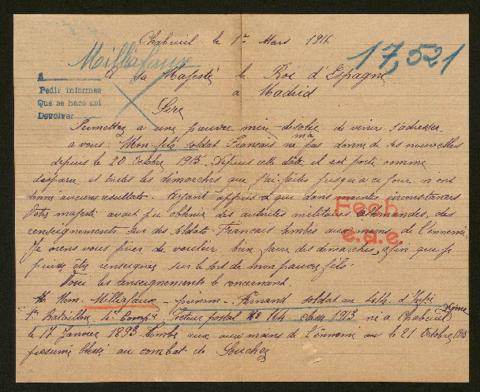 Chabeuil le 1er Mars 1916
Millafaux
17,521
A sa Majesté le Roi d'Espagne
A
Pedir informes
Que se hace así
Devolver
à Madrid
Sire
Permettez a une pauvre mère désolée de venir s'adresser
a vous. Mon fils soldat Francais ne m'a pas donné de ses nouvelles
depuis le 20 Octobre 1915. Depuis cette date il est porté comme
disparu et toutes les démarches que j'ai faites jusqu'a ce jour n'ont
donné aucun resultat. Ayant appris que dans maintes circonstances
Votre majesté avait pu obtenir des autorités militaires allemandes, des
renseignements sur des soldats Francais tombés aux mains de l'ennemi
Je viens vous prier de vouloir bien faire des démarches, afin que je
puisse être renseignée sur le sort de mon pauvre fils
Fech.
e.a.e.
Voici les renseignements le concernant.
Nom. Millafaux - prénom - Fernand soldat au 164e d'Infie
1er Bataillon 4e Comp Secteur postal No 164 classe 1913 né a Chabeuil
le 17 Janvier 1893 tombé aux mains de l'ennemi le 21 Octobre 1915
présumé blessé au combat de Souchez